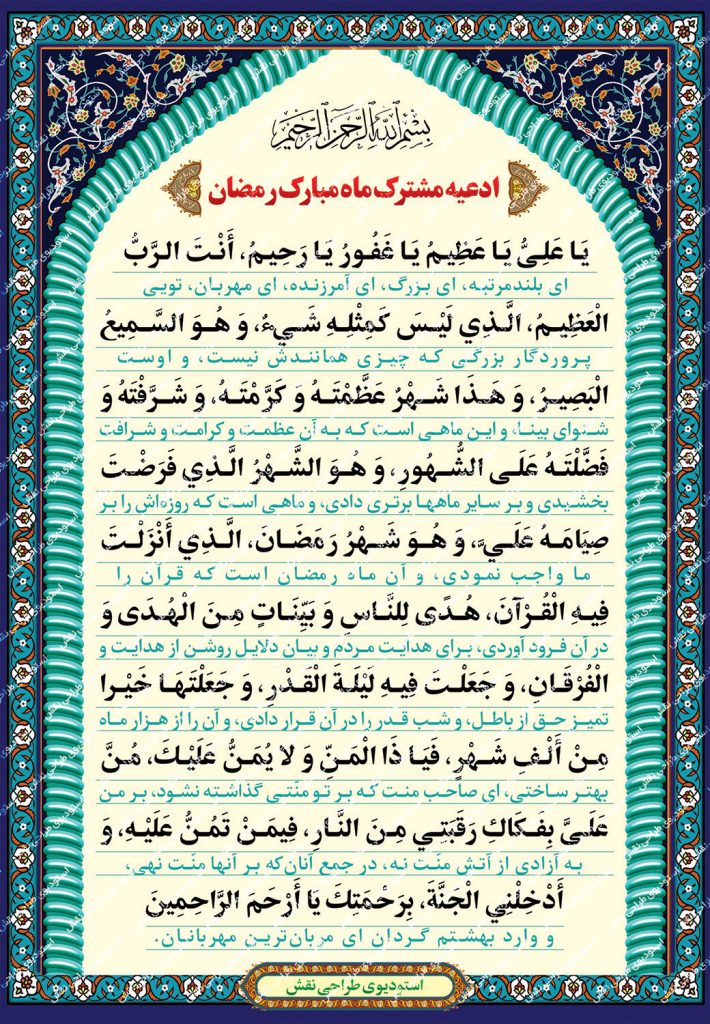 بِسْمِ اللَّهِ الرَّحْمَنِ الرَّحِيمِ
ادعیه مشترک ماه مبارک رمضان
يَا عَلِيُّ يَا عَظِيمُ يَا غَفُورُ يَا رَحِيمُ، أَنْتَ الرَّبُّ
ای بلندمرتبه، ای بزرگ، ای آمرزنده، ای مهربان، تویی
الْعَظِيمُ، الَّذِي لَيْسَ كَمِثْلِهِ شَيْءٌ، وَ هُوَ السَّمِيعُ
پروردگار بزرگی که چیزی همانندش نیست، و اوست
الْبَصِيرُ، وَ هَذَا شَهْرٌ عَظَّمْتَهُ وَ كَرَّمْتَهُ، وَ شَرَّفْتَهُ وَ
شنوای بینا، و این ماهی است که به آن عظمت و کرامت و شرافت
فَضَّلْتَهُ عَلَى الشُّهُورِ، وَ هُوَ الشَّهْرُ الَّذِي فَرَضْتَ
بخشیدی و بر سایر ماهها برتری دادی، و ماهی است که روزه‌اش را بر
صِيَامَهُ عَلَيَّ، وَ هُوَ شَهْرُ رَمَضَانَ، الَّذِي أَنْزَلْتَ
ما واجب نمودی، و آن ماه رمضان است که قرآن را
فِيهِ الْقُرْآنَ، هُدًى لِلنَّاسِ وَ بَيِّنَاتٍ مِنَ الْهُدَى وَ
در آن فرود آوردی، برای هدایت مردم و بیان دلایل روشن از هدایت و
الْفُرْقَانِ، وَ جَعَلْتَ فِيهِ لَيْلَةَ الْقَدْرِ، وَ جَعَلْتَهَا خَيْرا
تمیز حق از باطل، و شب قدر را در آن قرار دادی، و آن را از هزار ماه
مِنْ أَلْفِ شَهْرٍ، فَيَا ذَا الْمَنِّ وَ لا يُمَنُّ عَلَيْكَ، مُنَّ
بهتر ساختی، ای صاحب منت که بر تو منّتی گذاشته نشود، بر من
عَلَيَّ بِفَكَاكِ رَقَبَتِي مِنَ النَّارِ، فِيمَنْ تَمُنُّ عَلَيْهِ، وَ
به آزادی از آتش منّت نه، در جمع آنان‌که بر آنها منّت نهی،
أَدْخِلْنِي الْجَنَّةَ، بِرَحْمَتِكَ يَا أَرْحَمَ الرَّاحِمِينَ
و وارد بهشتم گردان ای مربان‌ترین مهربانان.
استودیوی طراحی نقش